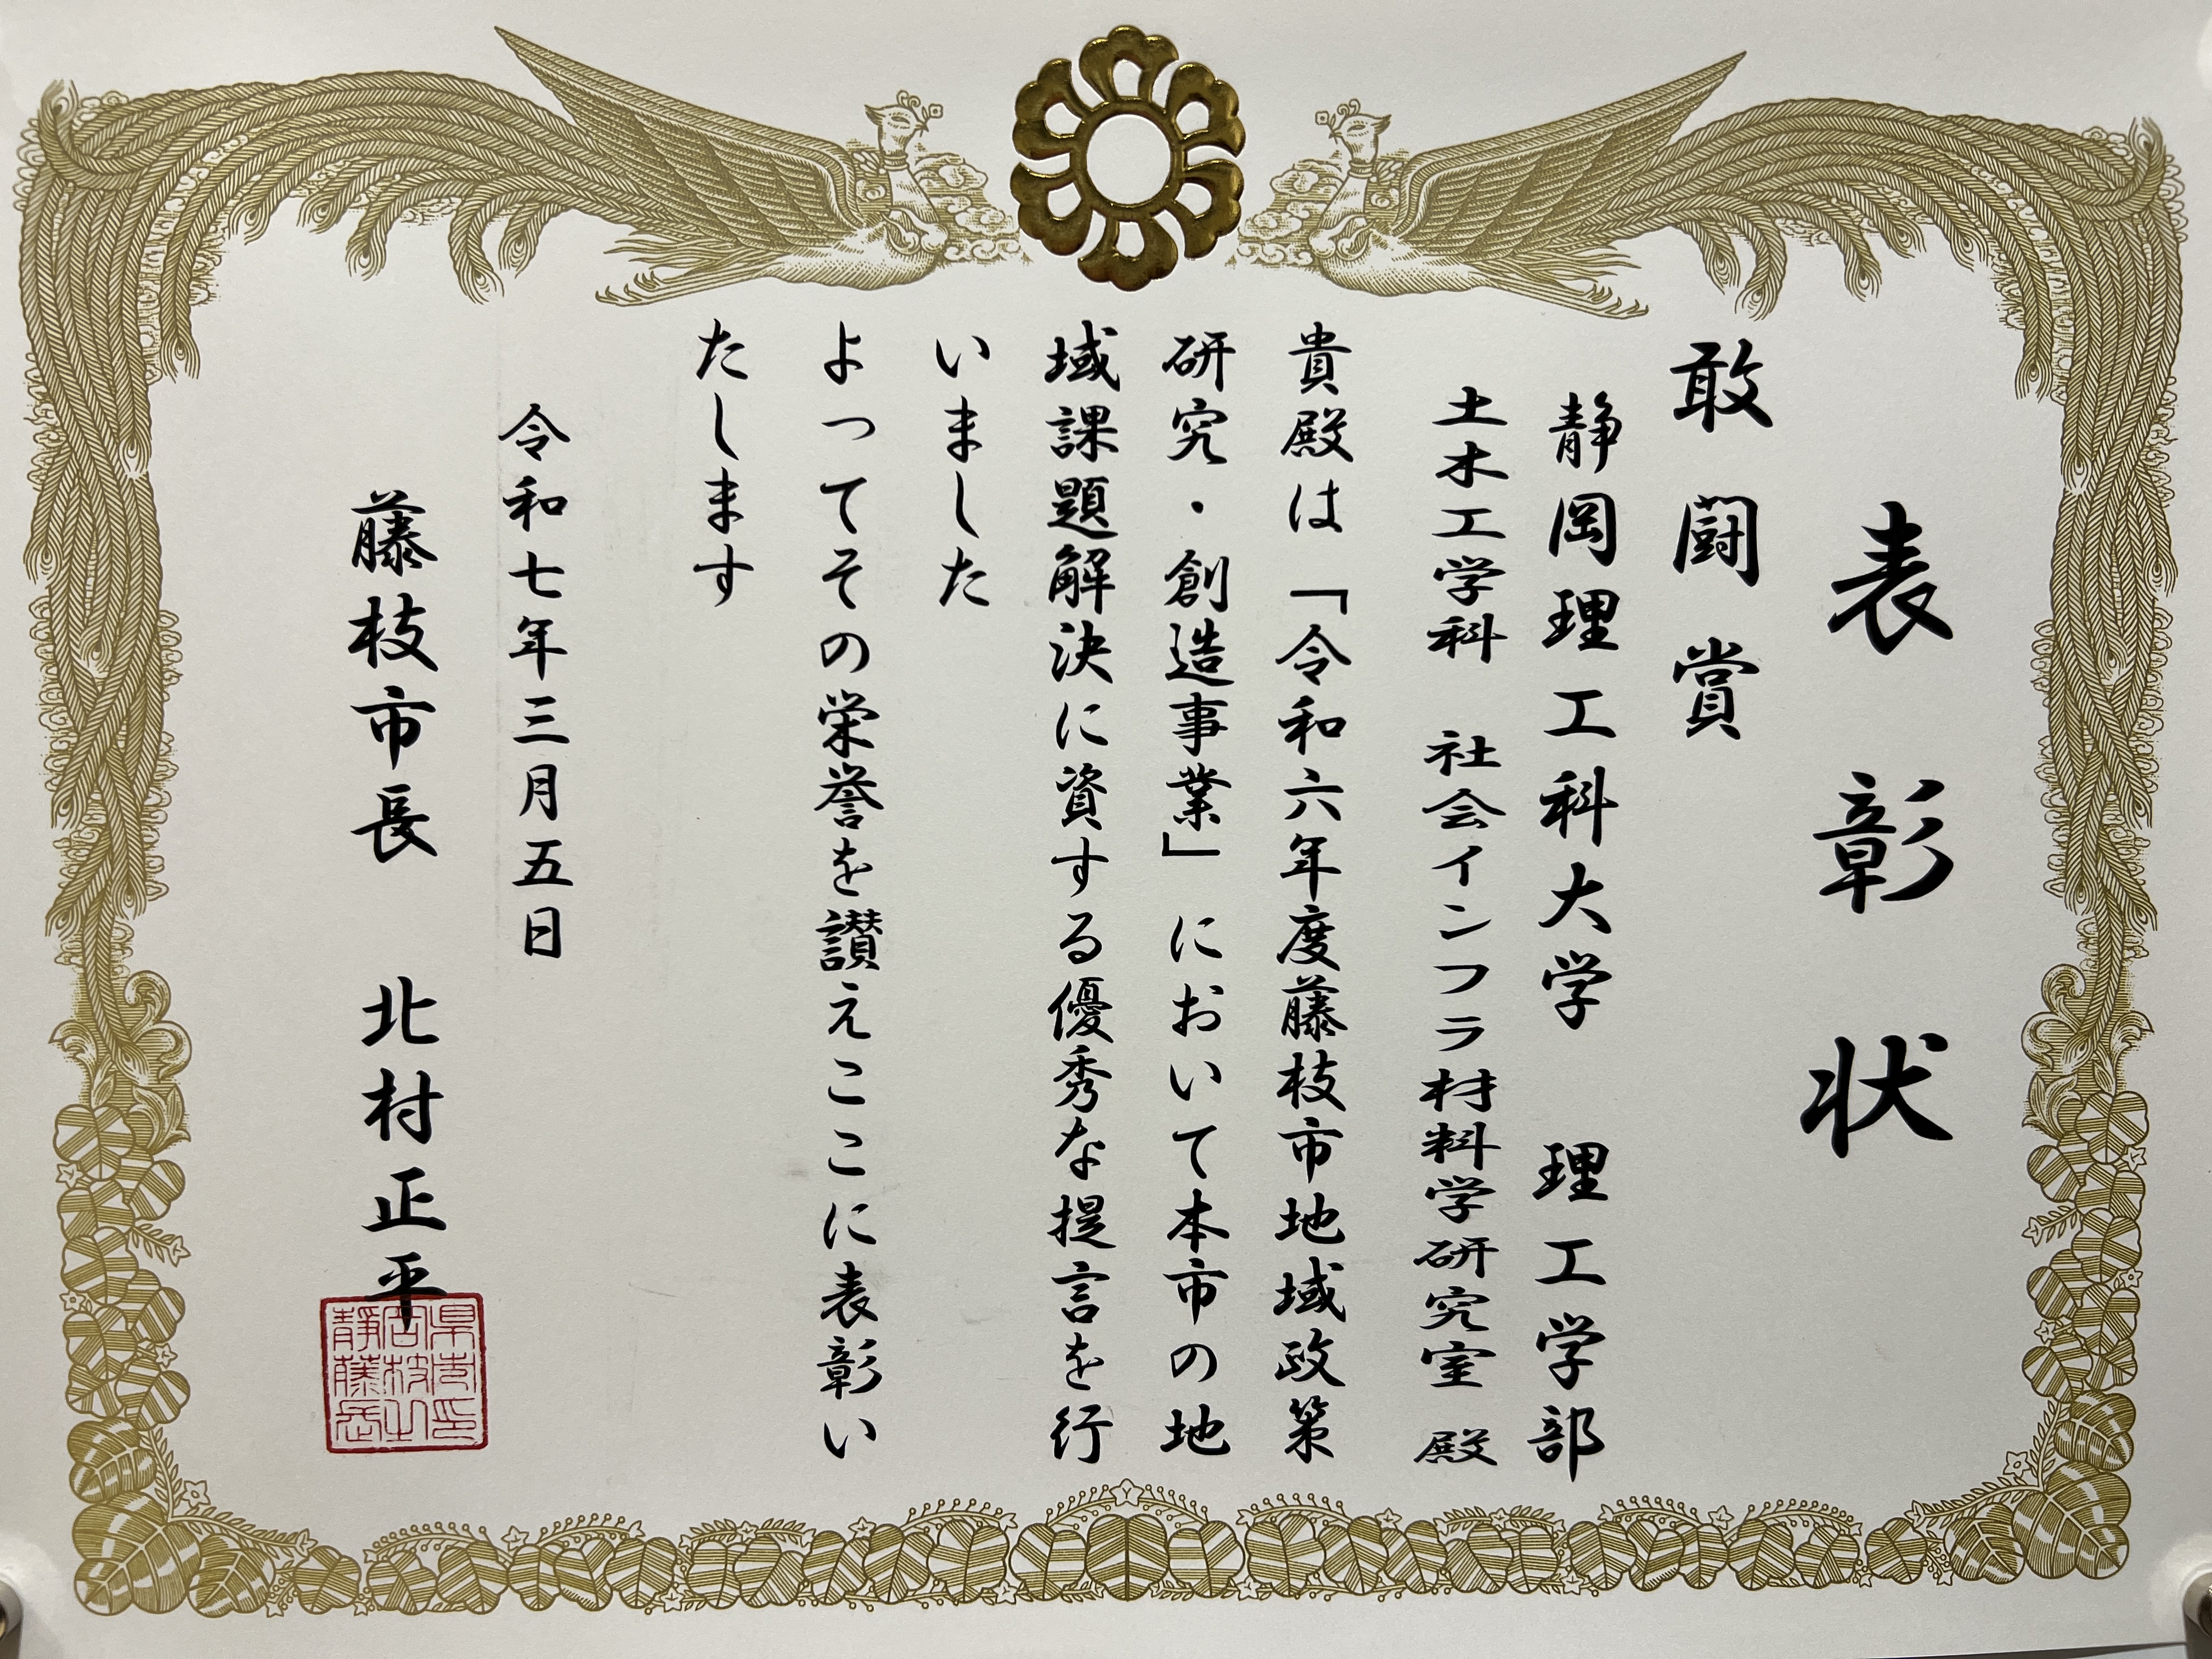 表彰状
敢闘賞
静岡理工科大学 理工学部
土木工学科 社会インフラ材料学研究室 殿
貴殿は「令和六年度藤枝市地域政策
研究・創造事業」において本市の地
域課題解決に資する優秀な提言を行
いました
よってその栄誉を讃えここに表彰い
たします
令和七年三月五日
藤枝市長 北村正平
静岡県
藤枝市
長之印